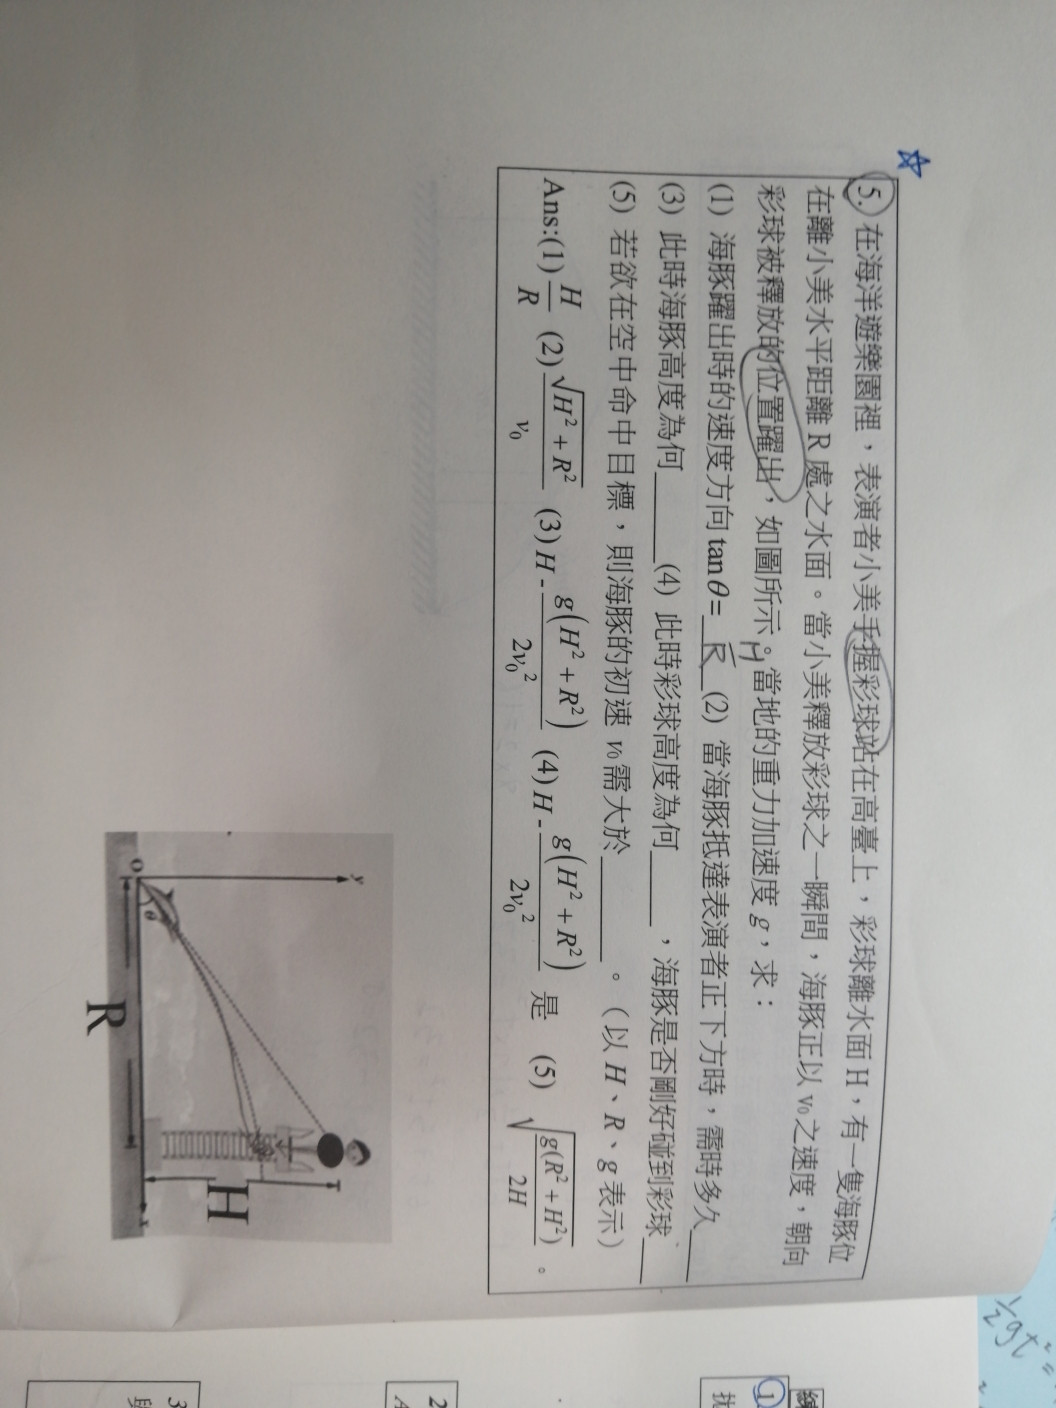 ☆
5. 在海洋遊樂園裡，表演者小美手握彩球站在高臺上，彩球離水面 H，有一隻海豚位
在離小美水平距離 R 處之水面。當小美釋放彩球之一瞬間，海豚正以 v₀ 之速度，朝向
彩球被釋放的位置躍出，如圖所示。當地的重力加速度 g，求：
(1) 海豚躍出時的速度方向 tan θ = H/R (2) 當海豚抵達表演者正下方時，需時多久____
(3) 此時海豚高度為何____(4) 此時彩球高度為何____，海豚是否剛好碰到彩球____
(5) 若欲在空中命中目標，則海豚的初速 v₀ 需大於____。（以 H、R、g 表示）
Ans:(1) H/R (2) √(H² + R²)/v₀ (3) H - g(H² + R²)/2v₀² (4) H - g(H² + R²)/2v₀² 是 (5) √(g(R² + H²)/2H)。
y
O
θ
x
R
H
½gt² =
練
1
扰
2
A
3